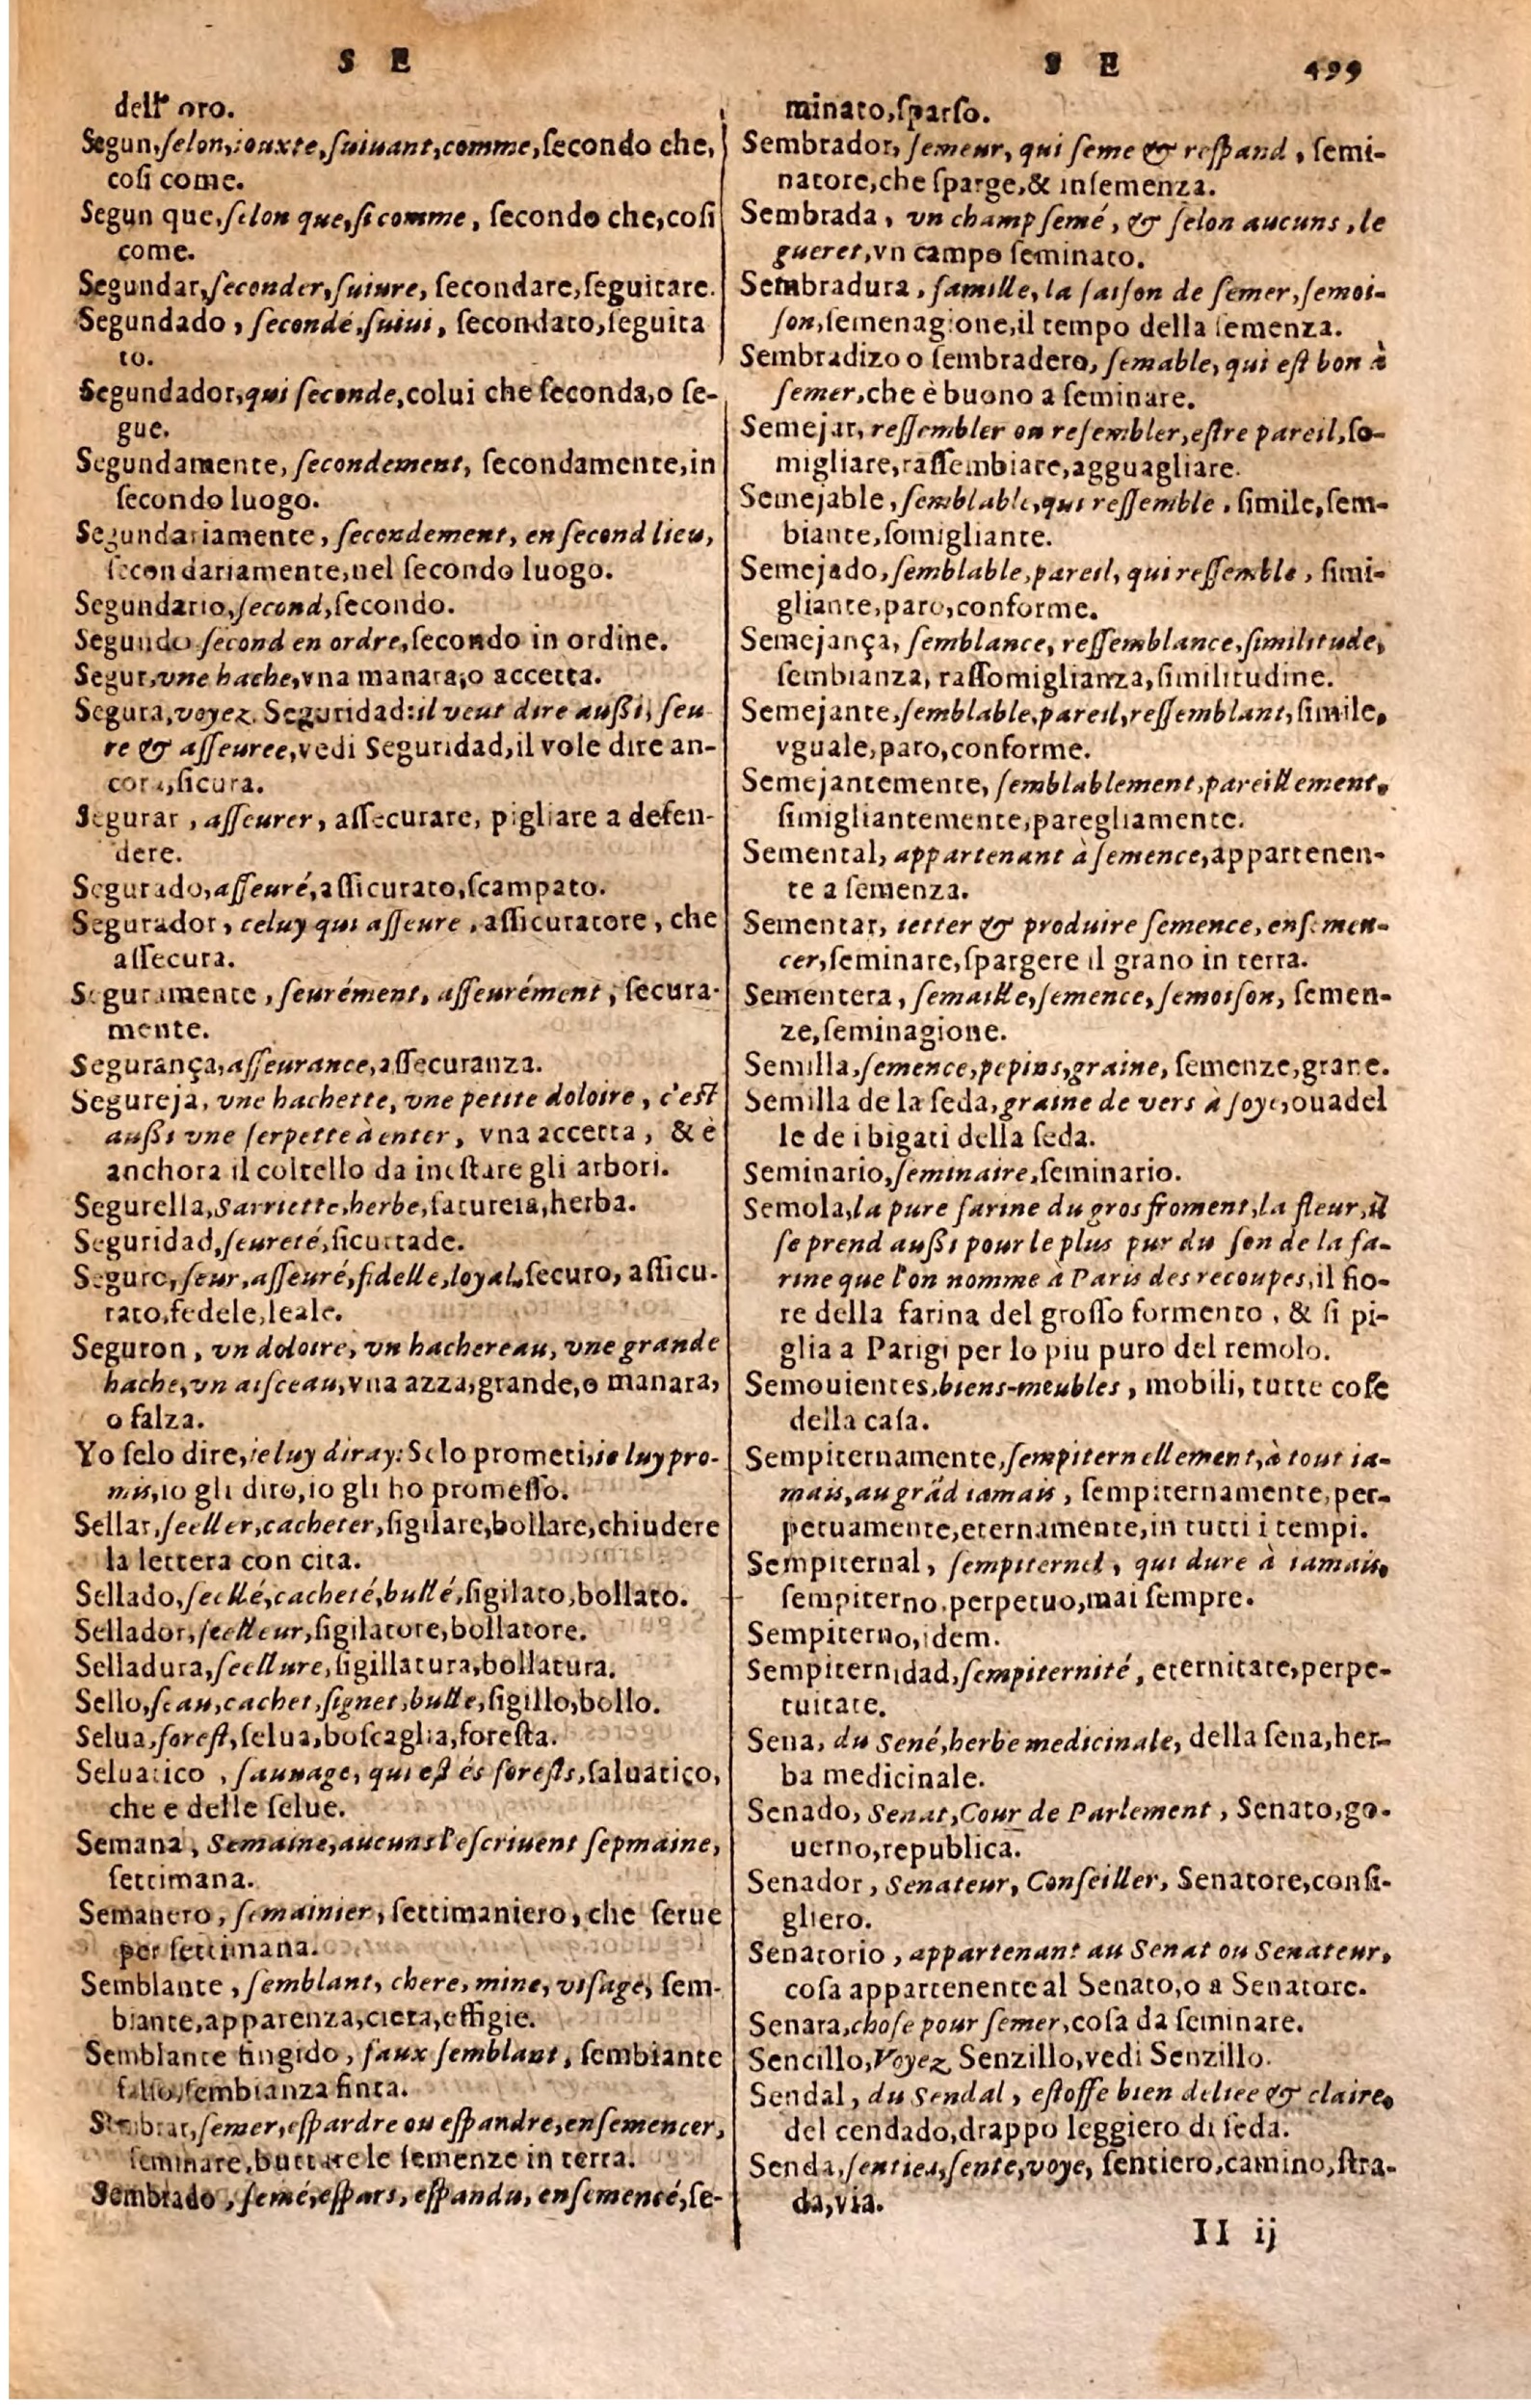 S E
dell' oro.
Segun, ſelon, iouxte, ſuiuant, comme, ſecondo che,
coſi come.
Segun que, ſelon que, ſi comme, ſecondo che, coſi
come.
Segundar, ſeconder, ſuiure, ſecondare, ſeguitare.
Segundado, ſecondé, ſuiui, ſecondato, ſeguita
to.
Segundador, qui ſeconde, colui che ſeconda, o ſe-
gue.
Segundamente, ſecondement, ſecondamente, in
ſecondo luogo.
Segundariamente, ſecondement, en ſecond lieu,
ſecondariamente, nel ſecondo luogo.
Segundario, ſecond, ſecondo.
Segundo ſecond en ordre, ſecondo in ordine.
Segur, vne hache, vna manara, o accetta.
Segura, voyez Seguridad: il veut dire außi, ſeu
re & aſſeuree, vedi Seguridad, il vole dire an-
cora, ſicura.
Segurar, aſſeurer, aſſecurare, pigliare a defen-
dere.
Segurado, aſſeuré, aſſicurato, ſcampato.
Segurador, celuy qui aſſeure, aſſicuratore, che
aſſecura.
Seguramente, ſeurément, aſſeurément, ſecura-
mente.
Segurança, aſſeurance, aſſecuranza.
Segureja, vne hachette, vne petite doloire, c'eſt
außi vne ſerpette à enter, vna accetta, & è
anchora il coltello da ineſtare gli arbori.
Segurella, Sarriette, herbe, ſatureia, herba.
Seguridad, ſeureté, ſicurtade.
Seguro, ſeur, aſſeuré, fidelle, loyal, ſecuro, aſſicu-
rato, fedele, leale.
Seguron, vn doloire, vn hachereau, vne grande
hache, vn aiſceau, vna azza, grande, o manara,
o falza.
Yo ſelo dire, ie luy diray: Selo prometi, ie luy pro-
mis, io gli diro, io gli ho promeſſo.
Sellar, ſeeller, cacheter, ſigilare, bollare, chiudere
la lettera con cita.
Sellado, ſeellé, cacheté, bullé, ſigilato, bollato.
Sellador, ſeelleur, ſigilatore, bollatore.
Selladura, ſeellure, ſigillatura, bollatura.
Sello, ſeau, cachet, ſignet, bulle, ſigillo, bollo.
Selua, foreſt, ſelua, boſcaglia, foreſta.
Seluatico, ſauuage, qui eſt és foreſts, ſaluatico,
che e delle ſelue.
Semana, Semaine, aucuns l'eſcriuent ſepmaine,
ſettimana.
Semanero, ſemainier, ſettimaniero, che ſerue
per ſettimana.
Semblante, ſemblant, chere, mine, viſage, ſem-
biante, apparenza, ciera, effigie.
Semblante fingido, faux ſemblant, ſembiante
falſo, ſembianza finta.
Sembrar, ſemer, eſpardre ou eſpandre, enſemencer,
ſeminare, buttare le ſemenze in terra.
Sembrado, ſemé, eſpars, eſpandu, enſemencé, ſe-
S E 499
minato, ſparſo.
Sembrador, ſemeur, qui ſeme & reſpand, ſemi-
natore, che ſparge, & inſemenza.
Sembrada, vn champ ſemé, & ſelon aucuns, le
gueret, vn campo ſeminato.
Sembradura, ſamille, la ſaiſon de ſemer, ſemoi-
ſon, ſemenagione, il tempo della ſemenza.
Sembradizo o ſembradero, ſemable, qui eſt bon à
ſemer, che è buono a ſeminare.
Semejar, reſſembler ou reſembler, eſtre pareil, ſo-
migliare, raſſembiare, agguagliare.
Semejable, ſemblable, qui reſſemble, ſimile, ſem-
biante, ſomigliante.
Semejado, ſemblable, pareil, qui reſſemble, ſimi-
gliante, paro, conforme.
Semejança, ſemblance, reſſemblance, ſimilitude,
ſembianza, raſſomiglianza, ſimilitudine.
Semejante, ſemblable, pareil, reſſemblant, ſimile,
vguale, paro, conforme.
Semejantemente, ſemblablement, pareillement,
ſimigliantemente, paregliamente.
Semental, appartenant à ſemence, appartenen-
te a ſemenza.
Sementar, ietter & produire ſemence, enſemen-
cer, ſeminare, ſpargere il grano in terra.
Sementera, ſemaille, ſemence, ſemoiſon, ſemen-
ze, ſeminagione.
Semilla, ſemence, pepins, graine, ſemenze, grane.
Semilla de la ſeda, graine de vers à ſoye, ouadel
le de i bigati della ſeda.
Seminario, ſeminaire, ſeminario.
Semola, la pure farine du gros froment, la fleur, il
ſe prend außi pour le plus pur du ſon de la fa-
rine que l'on nomme à Paris des recoupes, il fio-
re della farina del groſſo formento, & ſi pi-
glia a Parigi per lo piu puro del remolo.
Semouientes, biens-meubles, mobili, tutte coſe
della caſa.
Sempiternamente, ſempiternellement, à tout ia-
mais, au grãd iamais, ſempiternamente, per-
petuamente, eternamente, in tutti i tempi.
Sempiternal, ſempiternel, qui dure à iamais,
ſempiterno, perpetuo, mai ſempre.
Sempiterno, idem.
Sempiternidad, ſempiternité, eternitate, perpe-
tuitate.
Sena, du Sené, herbe medicinale, della ſena, her-
ba medicinale.
Senado, Senat, Cour de Parlement, Senato, go-
uerno, republica.
Senador, Senateur, Conſeiller, Senatore, conſi-
gliero.
Senatorio, appartenant au Senat ou Senateur,
coſa appartenente al Senato, o a Senatore.
Senara, choſe pour ſemer, coſa da ſeminare.
Sencillo, Voyez Senzillo, vedi Senzillo.
Sendal, du Sendal, eſtoffe bien deliee & claire,
del cendado, drappo leggiero di ſeda.
Senda, ſentier, ſente, voye, ſentiero, camino, ſtra-
da, via.
II ij